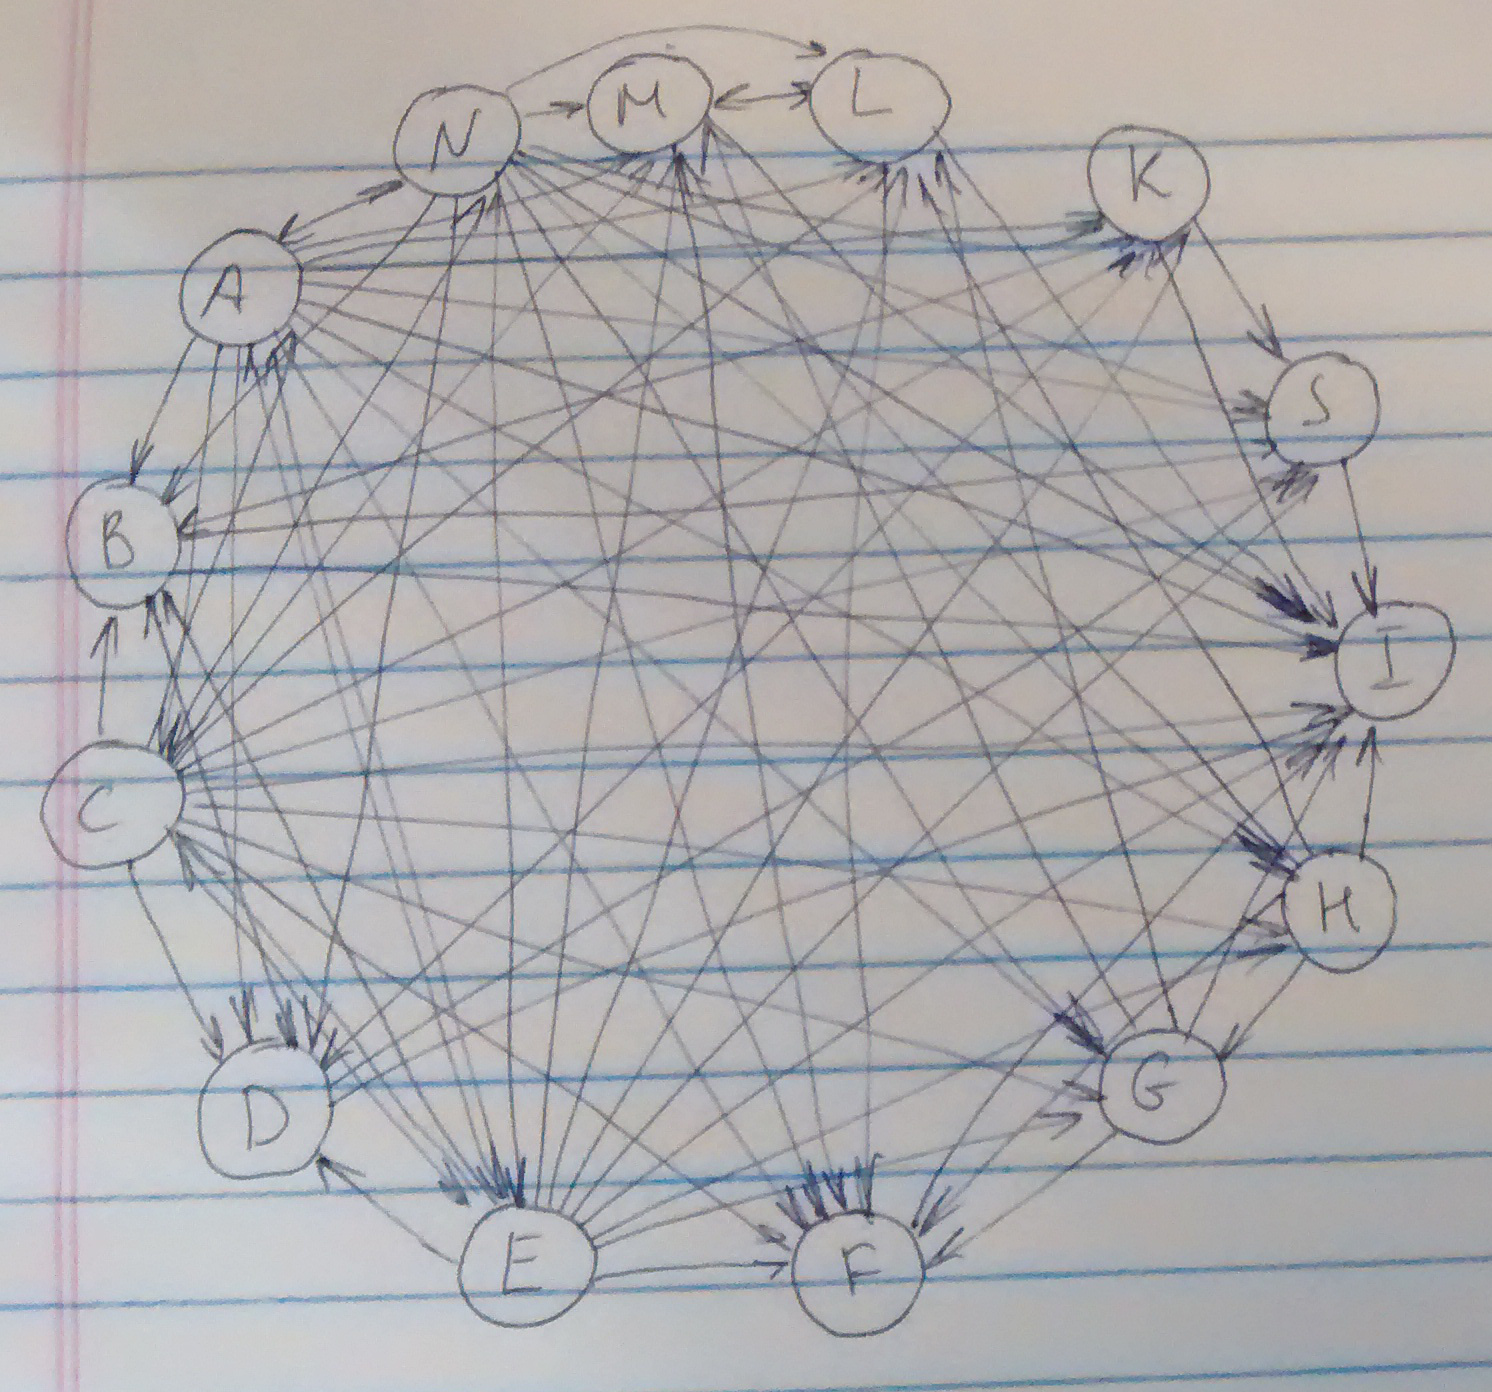 N
M
L
K
A
S
B
I
C
H
D
G
E
F